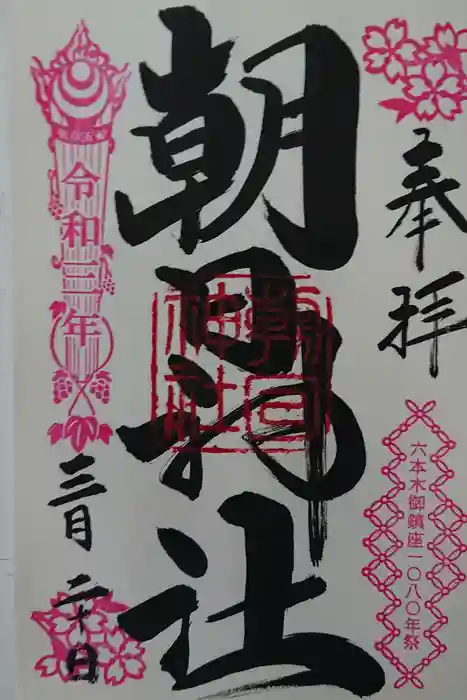 奉拝
六本木御鎮座一〇八〇年祭
朝日神社
朝日
神社
令和三年
三月二十日